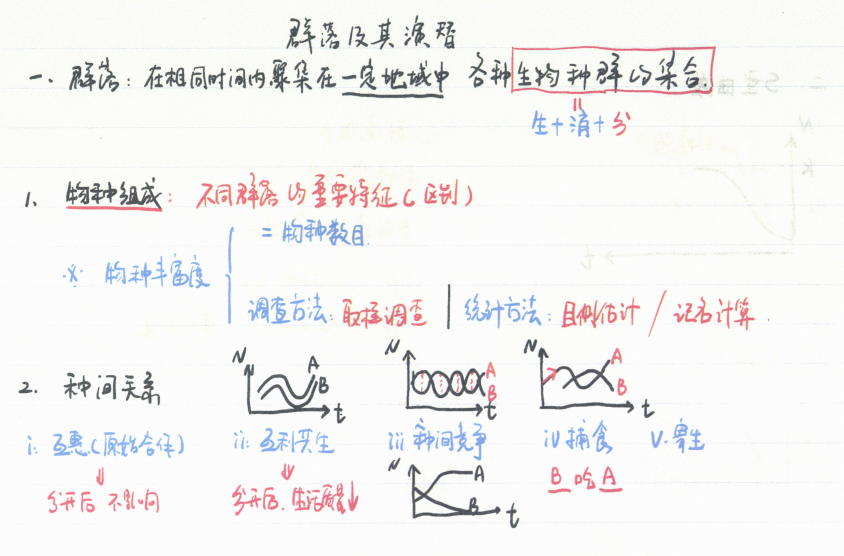 群落及其演替
一、群落：在相同时间内聚集在一定地域中 各种生物种群的集合.
=
生+消+分
1、物种组成：不同群落的重要特征(区别)
※ 物种丰富度
= 物种数目.
调查方法：取样调查 | 统计方法：目测估计 / 记名计算.
2、种间关系
N A B t
N A B t
N A B t
i: 互惠(原始合作) ii: 互利共生 iii 种间竞争 iv 捕食 v. 寄生
分开后 不影响
分开后. 生活质量↓
N A B t
B 吃 A